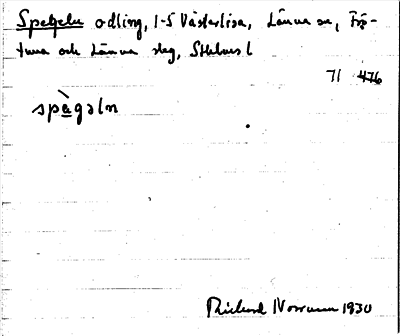 Spegeln odling, 1-5 Västerlisa, Länna sn, Frö-
tuna och Länna slg, Sthlms l
71 476
spàgəln
Rickard Norman 1930